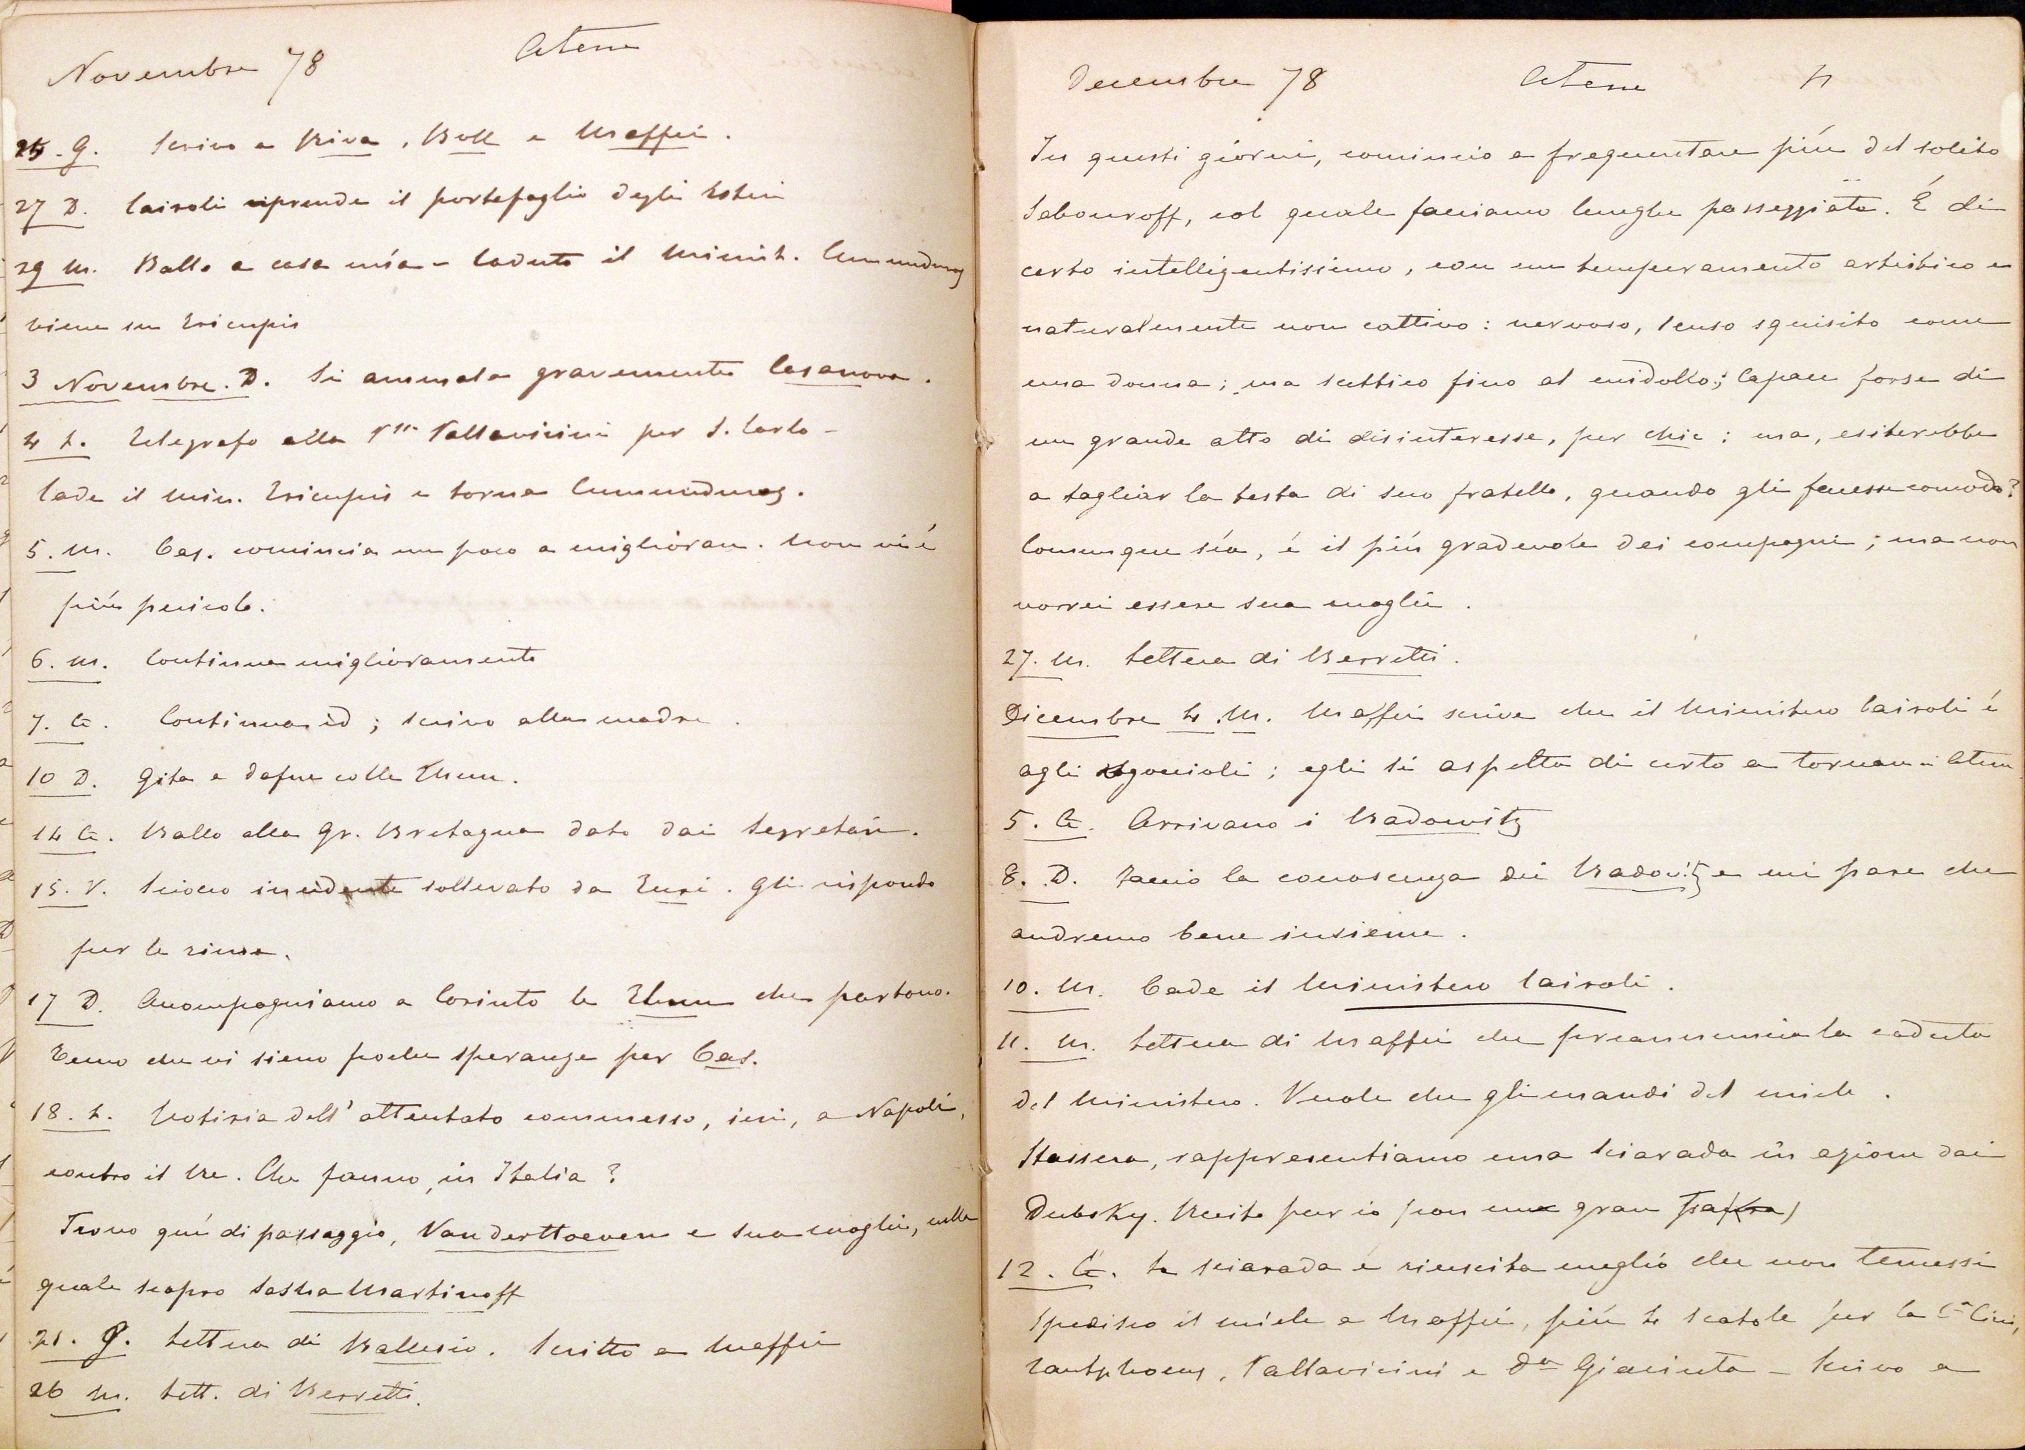 Novembre 78 Atene
25. G. Scrivo a Riva, Boll e Maffei.
27 D. Cairoli riprende il portafoglio degli Esteri
29 M. Ballo a casa mia – Caduto il Minist. Cumunduros
viene su Tricupis
3 Novembre. D. Si ammala gravemente Casanova.
4 L. Telegrafo alla Pssa Pallavicini per S. Carlo –
Cade il Min. Tricupis e torna Cumunduros.
5. M. Cas. comincia un poco a migliorare. Non vi é
più pericolo.
6. M. Continua miglioramento
7. G. Continua id; scrivo alla madre.
10 D. Gita a Dafne colle Thum.
14 G. Ballo alla Gr. Bretagna dato dai Segretari.
15. V. Sciocco incidente sollevato da . Gli rispondo
per le rime.
17 D. Accompagniamo a Corinto le Thum che partono.
Temo che vi sieno poche speranze per Cas.
18. L. Notizia dell' attentato commesso, ieri, a Napoli,
contro il Re. Che fanno, in Italia?
Trovo quí di passaggio, VanderHoeven e sua moglie, nella
quale scopro Sasha Martinoff
21. G. Lettera di Ballesio. Scritto a Maffei
26 M. Lett. di Berretti.
Decembre 78 Atene 4
In questi giorni, comincio a frequentare più del solito
Sabouroff, col quale facciamo lunghe passeggiate. É di
certo intelligentissimo, con un temperamento artistico e
naturalmente non cattivo: nervoso, senso squisito come
una donna; ma scettico fino al midollo; capace forse di
un grande atto di disinteresse, per chic; ma, esiterebbe
a tagliar la testa di suo fratello, quando gli facesse comodo?
Comunque sia, é il più gradevole dei compagni; ma non
vorrei essere sua moglie.
27. M. Lettera di Berretti.
Dicembre 4. M. Maffei scrive che il Ministero Cairoli é
agli sgoccioli; egli si aspetta di certo a tornare in Atene
5. G. Arrivano i Radowitz
8. D. Faccio la conoscenza dei Radowitz e mi pare che
andremo bene insieme.
10. M. Cade il Ministero Cairoli.
11. M. Lettera di Maffei che preannuncia la caduta
del Ministero. Vuole che gli mandi del miele.
Stassera, rappresentiamo una sciarada in azione dai
Dubsky. Recito pur io (con una gran
12. G. La sciarada é riuscita meglio che non temessi
Spedisco il miele a Maffei, più 4 scatole per la Cssa Cini,
Pallavicini e Da Giacinta – Scrivo a